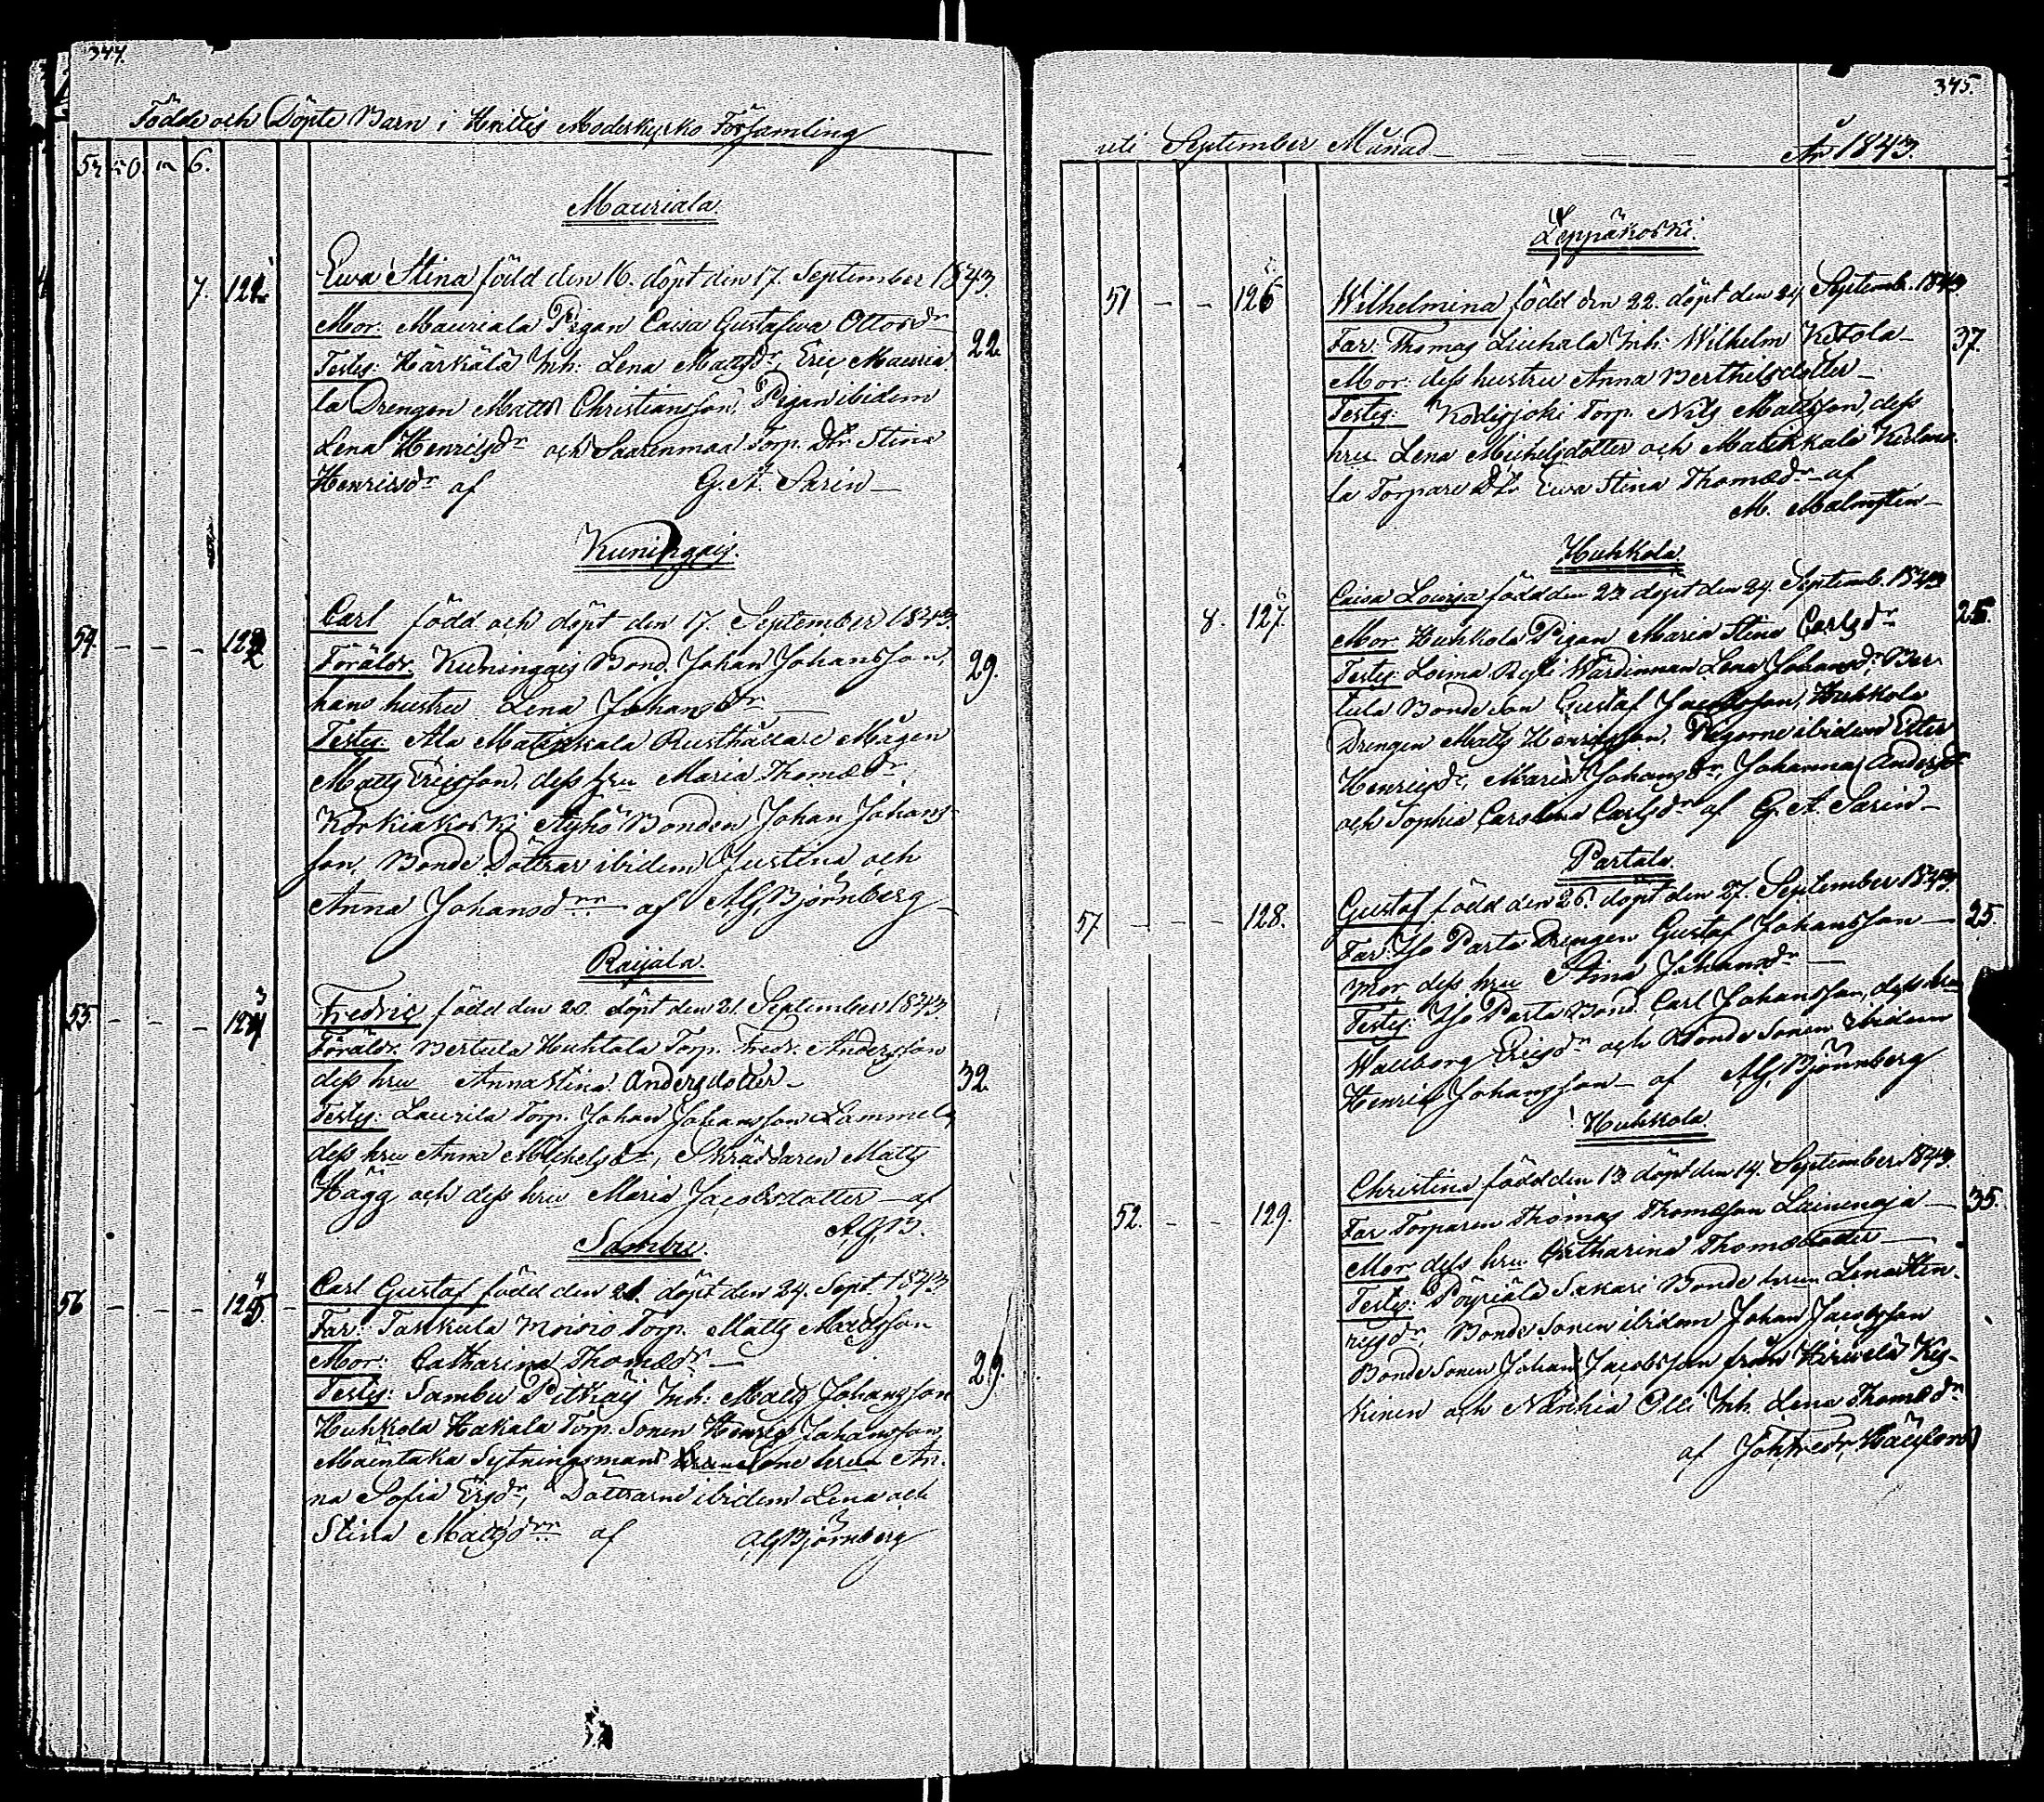 344.
Födde och Döpte Barn i Hvittis Moderkyrko Församling
6.
Mauriala.
7. 121
Ewa Stina född den 16. döpt den 17. September 1843.
Mor. Mauriala Pigan Caisa Gustafwa Ottosdr
22
Testes: Härkälä Inh: Lena Mattsdr, Eric Mauria
la Drengen Matts Christiansson, Pigan ibidem
Lena Henricsdr och Saarenmaa Torp. Dtr Stina
Henricsdr af G. A. Sarin
Kuningais.
54. - - - 122
Carl född och döpt den 17. September 1843.
Föräldr. Kuningais Bond. Johan Johansson,
29.
hans hustru Lena Johansdr
Testes: Ala Matiskala Rusthållare Mågen
Matts Ericsson, dess hru Maria Thomædr,
Korkiakoski Äyhö Bonden Johan Johans-
son, Bonde Döttrar ibidem Justina och
Anna Johansdrr af A.G. Björnberg
Raijala.
55. - - - 123
Fredric född den 20. döpt den 21. September 1843
Föräldr. Bertula Huhtala Torp. Fredr. Andersson
dess hru Anna Stina Andersdotter
32
Testes: Laurila Torp. Johan Johansson Lammela,
dess hru Anna Michelsdr, Skräddaren Matts
Hägg och dess hru Maria Jacobsdotter af
A.G.B.
Sambu.
56 - - - 124
Carl Gustaf född den 21. döpt den 24. Sept. 1843
Far: Taskula Moisio Torp. Matts Mattsson
Mor: Catharina Thomædr
29.
Testes: Sambu Pitkäis Inh: Matts Johansson
Huhkola Hakala Torp. Sonen Henric Johansson,
Mäentaka Sytningsmans hru An-
na Sofia Ersdr, Döttrarne ibidem Lena och
Stina Mattsdrr af A.G. Björnberg
345.
uti September Månad År 1843.
Leppäkoski.
51 - - 125
Wilhelmina född den 22. döpt den 24. Septemb. 1843
Far: Thomas Liuhala Inh: Wilhelm Ketola
37.
Mor: dess hustru Anna Berthilsdotter
Testes: Kodisjoki Torp. Nils Mattsson, dess
hru Lena Michelsdotter och
la Torpare Dtr Ewa Stina Thomædr af
M. Malmsten
Huhkola
8. 126
Caisa Lovisa född den 23 döpt den 24. Septemb. 1843
Mor Huhkola Pigan Maria Stina Carlsdr
25.
Testes: Loima Wärdinnan Lena Johansdr, Ber-
tula Bonde Son Gustaf Jacobsson, Huhkola
Drengen Matts Henricsson, Pigorne ibidem
Henricsdr, Maria Johansdr, Johanna Andersdr
och Sophia Carolina Carlsdr af G. A. Sarin
Partala
57 - - - 128.
Gustaf född den 26. döpt den 27. September 1843.
Far: Iso Parta Drengen Gustaf Johansson
25
Mor dess hru Stina Johansdr
Testes: Iso Parta Bond. Carl Johansson, dess hru
Wallborg Ericsdr och Bonde Sonen ibidem
Henric Johansson af A.G. Björnberg
Huhkola
52. - - 129.
Christina född den 13 döpt den 14. September 1843.
Far Torparen Thomas Thomasson Lainenoja
35.
Mor dess hru Catharina Thomædotter
Testes: Pöyriälä Sakari Bonde hrun Lena Hen-
ricsdr, Bonde Sonen ibidem Johan Jacobsson
Bonde Sonen Johan Jacobsson från Hirwelä Kys-
kinen och Olli Inh. Lena Thomædr
af Joh. Fredr.